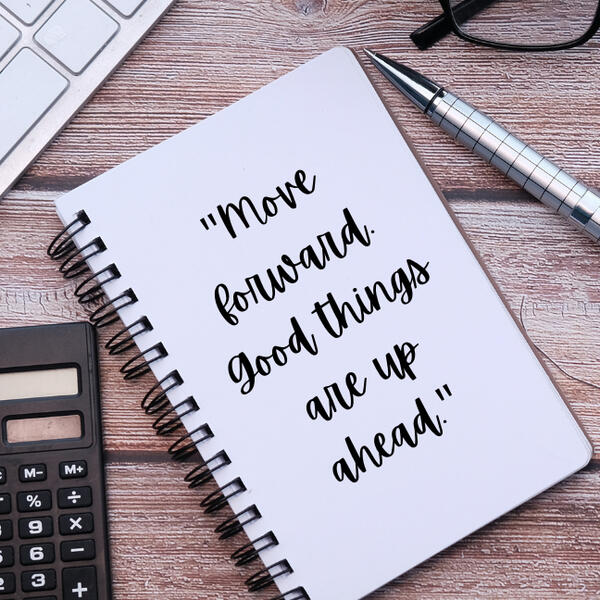 "Move
forward.
Good things
are up
ahead."
M- M+
% ÷
9 ×
6 −
3 +